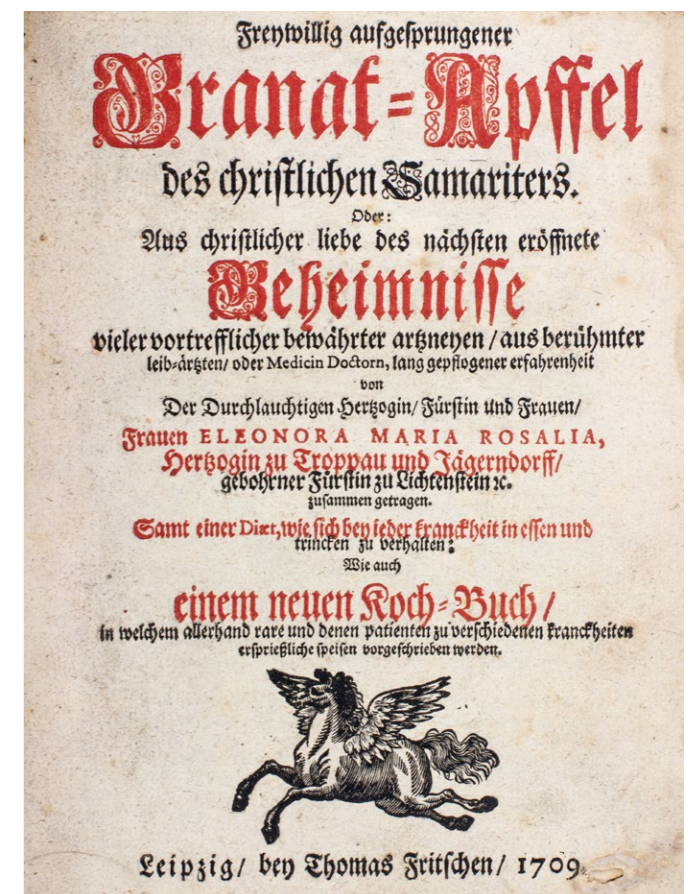 Freywillig aufgesprungener
Granat-Apffel
des christlichen Samariters.
Oder:
Aus christlicher liebe des nächsten eröffnete
Geheimnisse
vieler vortrefflicher bewährter artzneyen / aus berühmter
leib-ärtzten/ oder Medicin Doctorn, lang gepflogener erfahrenheit
von
Der Durchlauchtigen Hertzogin/ Fürstin und Frauen/
Frauen ELEONORA MARIA ROSALIA,
Hertzogin zu Troppau und Jägerndorff/
gebohrner Fürstin zu Lichtenstein ꝛc.
zusammen getragen.
Samt einer Diæt, wie sich bey ieder kranckheit in essen und
trincken zu verhalten:
Wie auch
einem neuen Koch-Buch /
in welchem allerhand rare und denen patienten zu verschiedenen kranckheiten
ersprießliche speisen vorgeschrieben werden.
Leipzig/ bey Thomas Fritschen/ 1709.